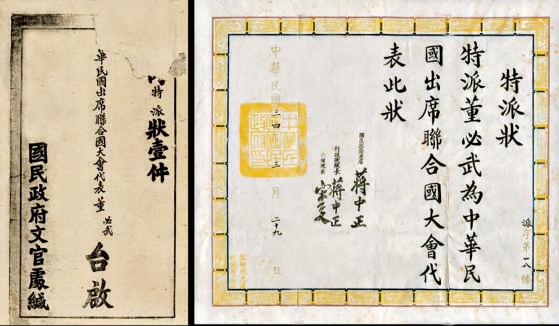 特派狀壹件
華民國出席聯合國大會代表董必武
台啟
國民政府文官處緘
派字第一八號
特派狀
特派董必武為中華民
國出席聯合國大會代
表此狀
國民政府主席 蔣中正
行政院院長 蔣中正
宋子文
中華民國三十四年三月二十九日